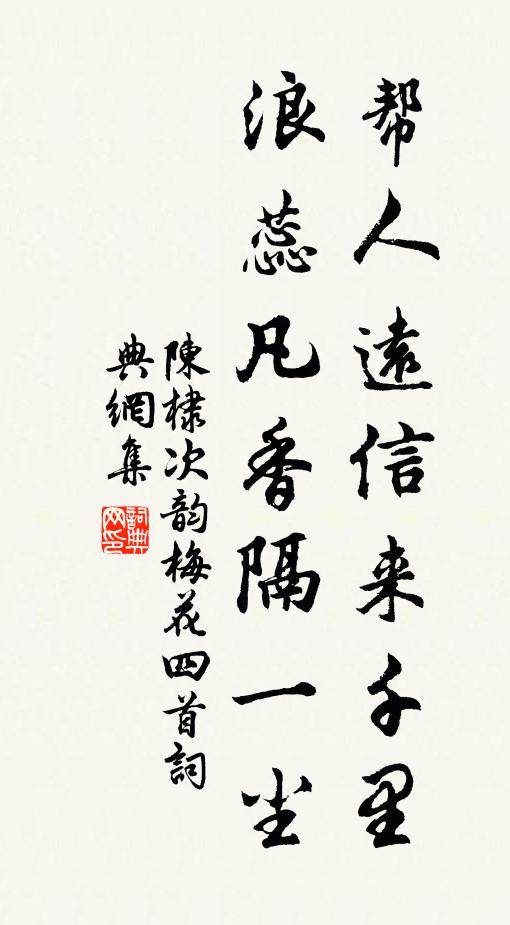 帮人遠信来千里
浪蕊凡香隔一尘
陳棣次韵梅花四首詞
典網集
詞典网印